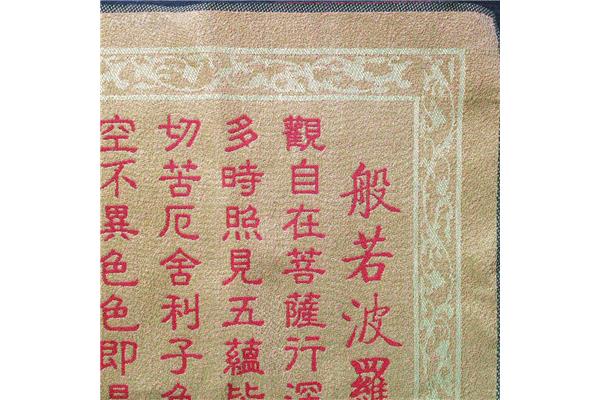 般若波羅
觀自在菩薩行深
多時照見五蘊皆
切苦厄舍利子色
空不異色色即是